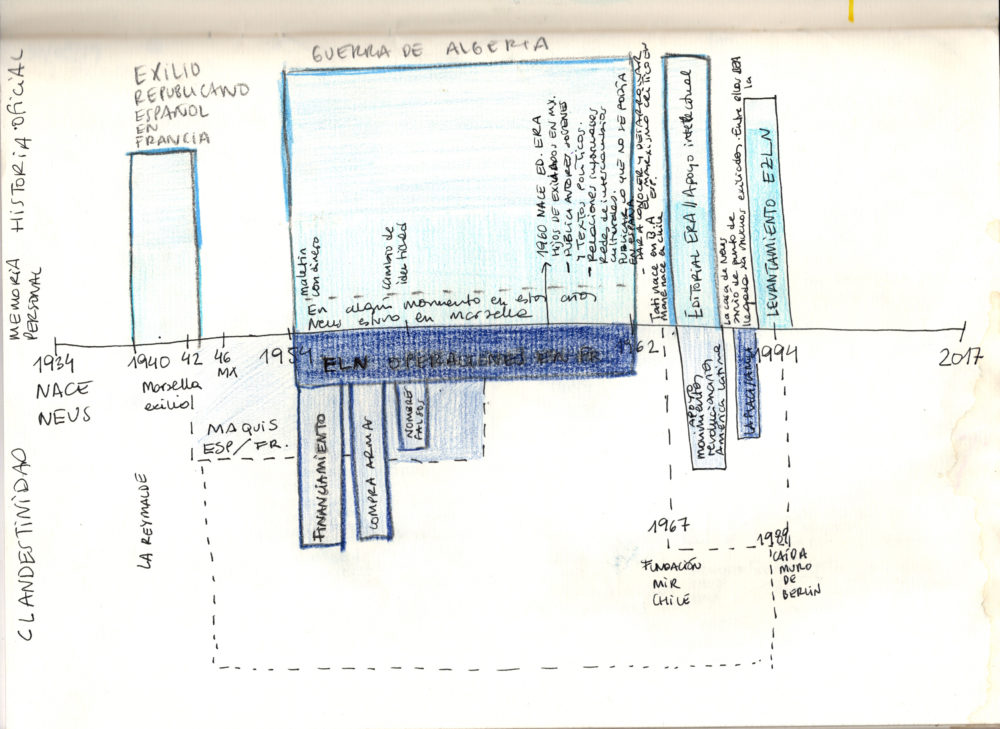 HISTORIA OFICIAL
MEMORIA
PERSONAL
CLANDESTINIDAD
EXILIO
REPUBLICANO
ESPAÑOL
EN
FRANCIA
GUERRA DE ALGERIA
maletin
con dinero
cambio de
identidad
En algun momento en estos años
Neus estuvo en Marsella
1960 NACE ED. ERA
Hijos de exiliados en MX.
- PUBLICA AUTORES JOVENES
Y TEXTOS POLÍTICOS.
- Relaciones informales
Redes de intercambios
culturales.
PUBLICAR LO QUE NO SE PODÍA
EN ESPAÑA
- DAR A CONOCER Y DESARROLLAR
EL MARXISMO CRÍTICO EN
ESP.
Tati nace en B.A
Mane nace en Chile
EDITORIAL ERA // Apoyo intelectual
La casa de Neus
sirvió de punto de
llegada a nuevos exiliados. Entre ellos
la
LEVANTAMIENTO EZLN
1934
NACE
NEUS
1940
Marsella
exilio
42
46
MX
1954
1962
1994
2017
ELN OPERACIONES
FINANCIAMIENTO
COMPRA ARMAS
NOMBRE
FALSOS
MAQUIS
ESP/FR.
LA REYNALDE
APOYO
movimientos
revolucionarios
América Latina
1967
FUNDACIÓN
MIR
CHILE
1989
CAÍDA
MURO
DE
BERLIN